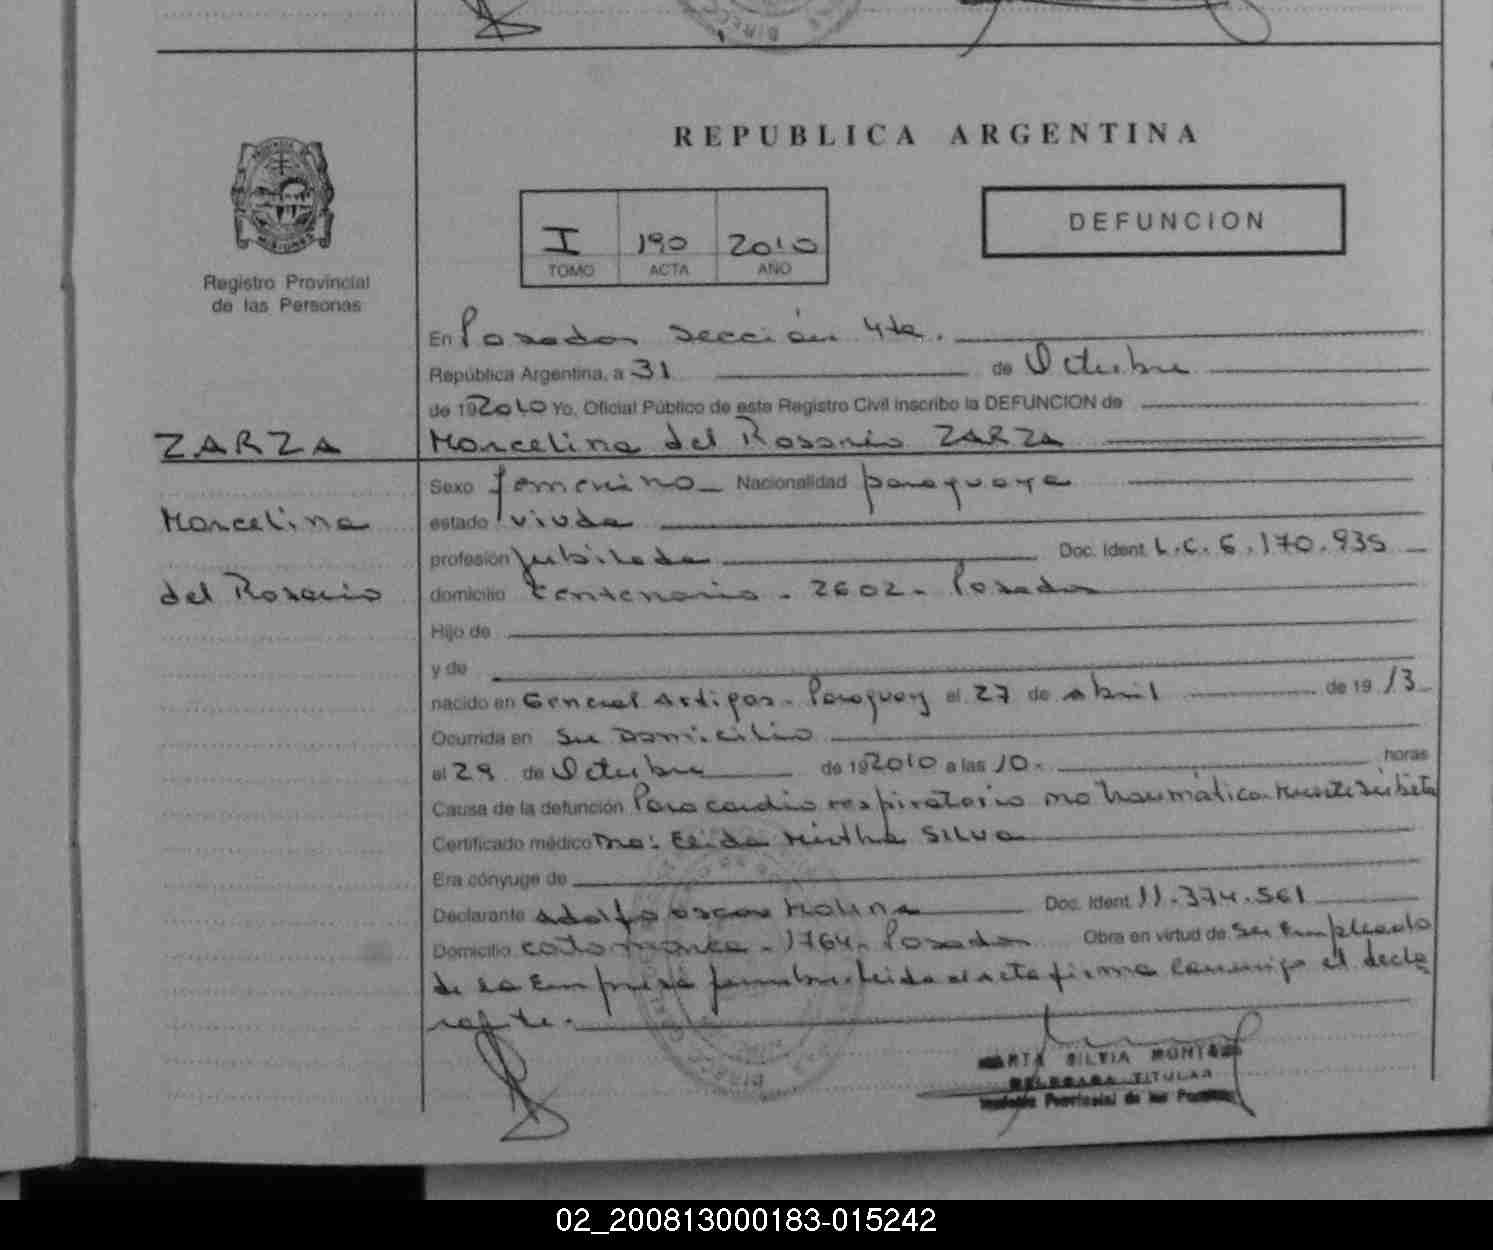 REPUBLICA ARGENTINA
DEFUNCION
I 190 2010
TOMO ACTA AÑO
Registro Provincial
de las Personas
En Posadas sección 4ta.
República Argentina, a 31 de Octubre
de 192010 Yo, Oficial Público de este Registro Civil inscribo la DEFUNCION de
ZARZA Marcelina del Rosario ZARZA
Sexo femenino Nacionalidad paraguaya
Marcelina
estado viuda
profesión jubilada Doc. Ident. L.C. 6.170.935
del Rosario domicilio Centenario - 2602 - Posadas
Hijo de
y de
nacido en General Artigas - Paraguay el 27 de abril de 19 13
Ocurrida en su Domicilio
el 29 de Octubre de 192010 a las 10 - horas
Causa de la defunción Paro cardio respiratorio no traumática. muerte súbita
Certificado médico Dra: Elida Mirtha SILVA
Era cónyuge de
Declarante Adolfo Oscar Molina Doc. Ident. 11.374.561
Domicilio Catamarca - 1764 - Posadas Obra en virtud de ser Empleado
de la Empresa fúnebre. leida el acta firma conmigo el decla
rante.
MARTA SILVIA
DELEGADA TITULAR
Provincial de las
02_200813000183-015242